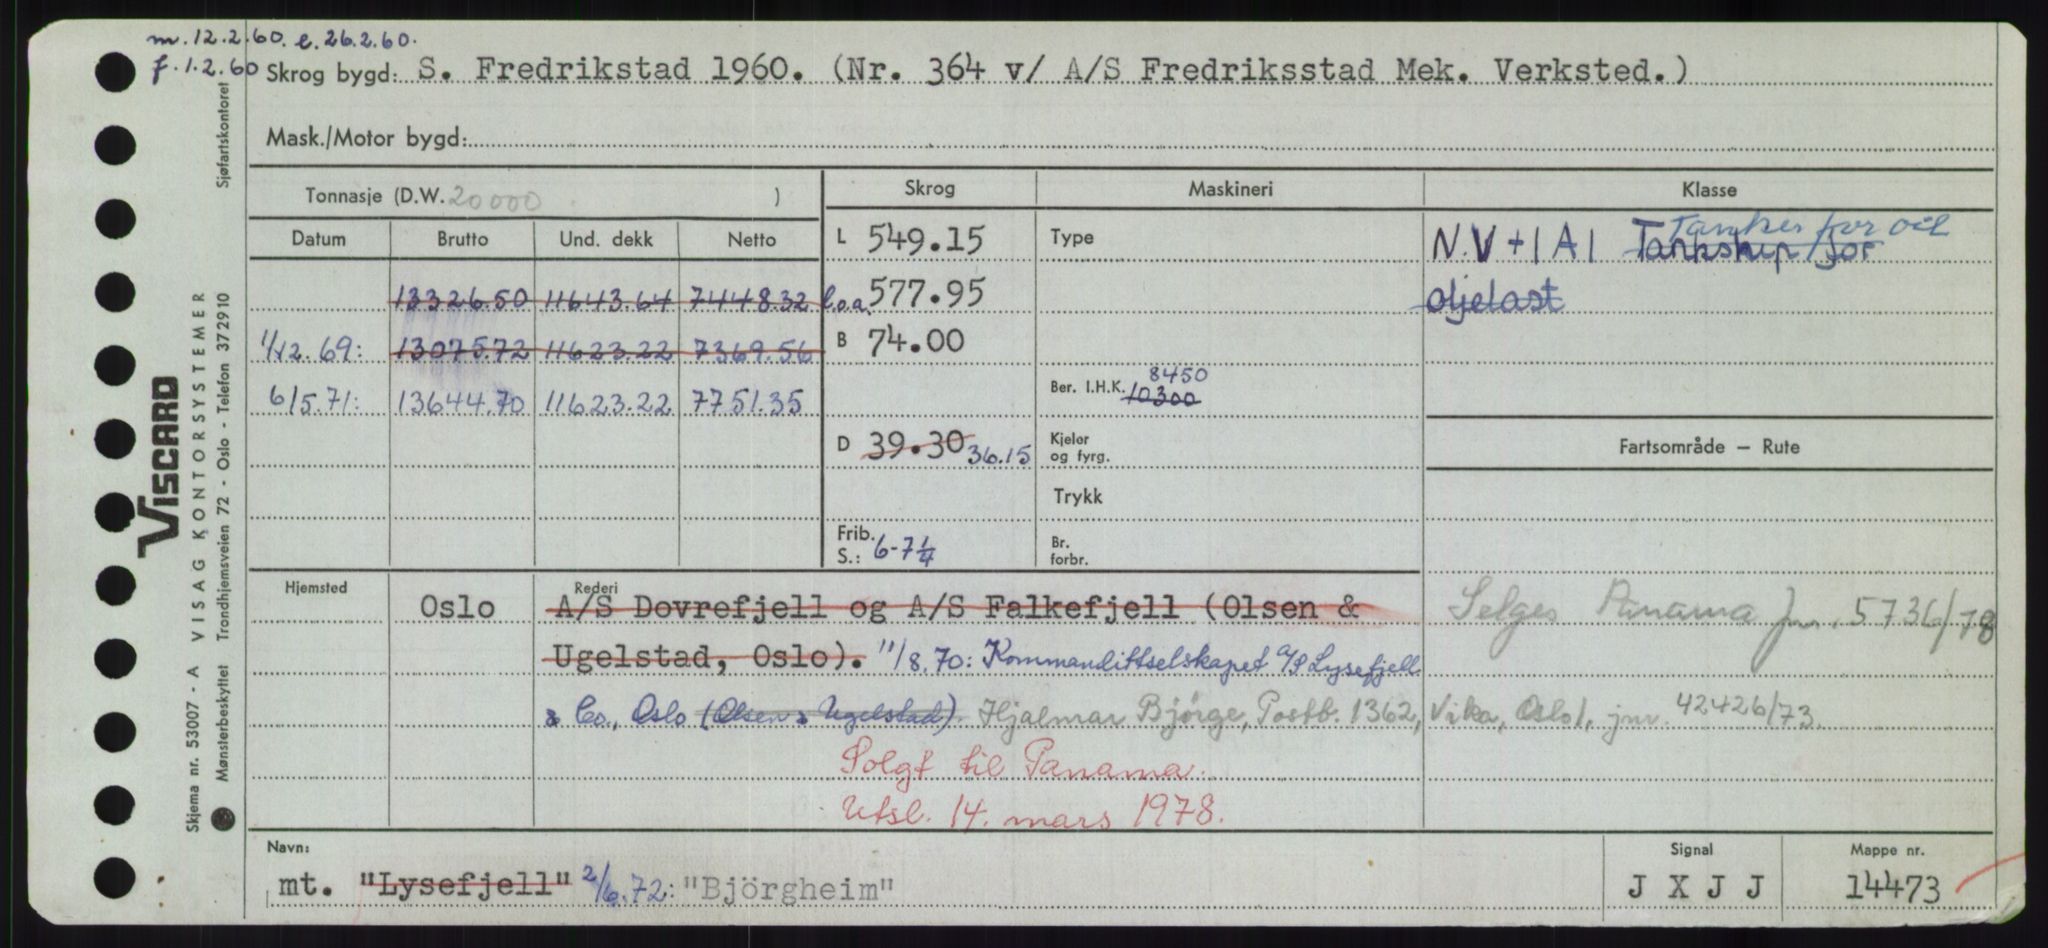 m. 12.2.60. e. 26.2.60.
f. 1.2.60 Skrog bygd: S. Fredrikstad 1960. (Nr. 364 v/ A/S Fredriksstad Mek. Verksted.)
Mask./Motor bygd:
Tonnasje (D.W. 20000 )
Skrog Maskineri Klasse
Datum Brutto Und. dekk Netto
L 549.15 Type N.V + 1 A 1 Tankskip for Tanker for oil
13326.50 11643.64 7448.32 l.o.a. 577.95 oljelast
1/12.69: 13075.72 11623.22 7369.56 B 74.00
6/5.71: 13644.70 11623.22 7751.35 Ber. I.H.K. 10300 8450
D 39.30 36.15 Kjeler og fyrg. Fartsområde — Rute
Trykk
Frib. S.: 6-7 1/4 Br. forbr.
Hjemsted Rederi
Oslo A/S Dovrefjell og A/S Falkefjell (Olsen & Selges Panama jnr. 5736/78
Ugelstad, Oslo). 11/8.70: Kommandittselskapet A/S Lysefjell
& Co., Oslo (Olsen & Ugelstad). Hjalmar Bjørge, Postb. 1362, Vika, Oslo 1, jnr. 42426/73.
Solgt til Panama.
Utsl. 14. mars 1978.
Navn: Signal Mappe nr.
mt. "Lysefjell" 2/6.72: "Björgheim" J X J J 14473
VISCARD
Skjema nr. 53007 - A VISAG KONTORSYSTEMER
Mønsterbeskyttet Trondhjemsveien 72 - Oslo - Telefon 372910 Sjøfartskontoret